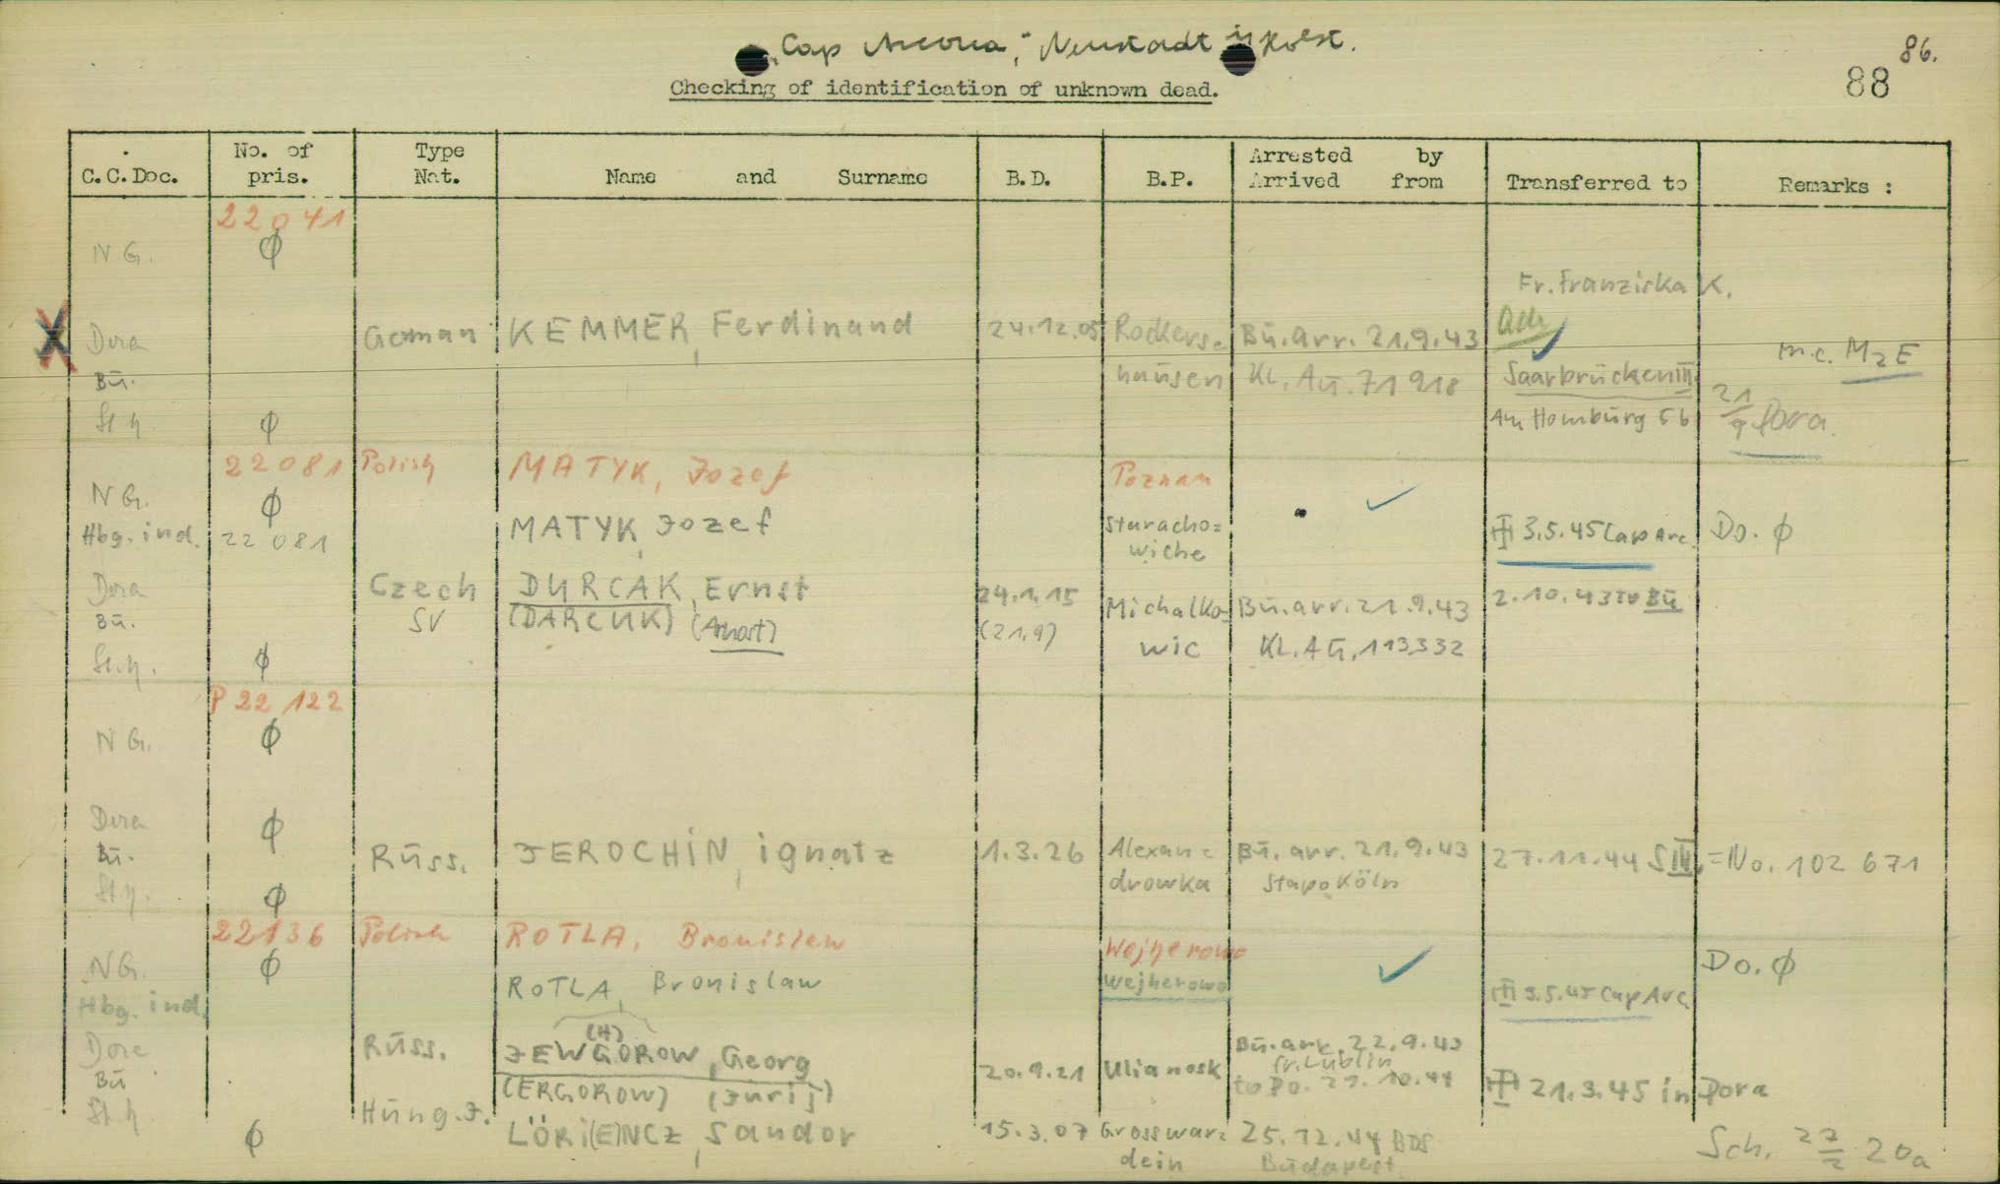 „Cap Arcona," Neustadt i/Holst.
86.
88
Checking of identification of unknown dead.
C.C.Doc. No. of pris. Type Nat. Name and Surname B.D. B.P. Arrested by Arrived from Transferred to Remarks :
22041
N G. ϕ
Fr. Franziska K.
X Dora German KEMMER, Ferdinand 24.12.05 Rockers= Bū. arr. 21.9.43
hausen KL. Aū. 71918 Saarbrücken III m.c. M2E
Bū.
St.h. ϕ Am Homburg 56 21/9 Dora.
22081 Polish MATYK, Jozef Poznan
N G. ϕ
Hbg. ind. 22081 MATYK, Jozef Staracho= wiche 3.5.45 Cap Arc. Do. ϕ
Dora Czech DURCAK, Ernst 24.1.15 Michalko= Bū. arr. 21.9.43 2.10.43 to Bū
Bū. SV (DARCUK) (21.9) wic KL. Aū. 113332
St.h. ϕ
P 22122
N G. ϕ
Dora ϕ
Bū. Rūss. JEROCHIN, ignatz 1.3.26 Alexan= drowka Bū. arr. 21.9.43 Stapo Köln 27.11.44 S III. = No. 102 671
St.h. ϕ
22136 Polish ROTLA, Bronislaw Wejherowo
NG. ϕ Do. ϕ
Hbg. ind. ROTLA, Bronislaw Wejherowo 3.5.45 Cap Arc.
(H)
Dora Rūss. JEWGOROW, Georg 20.9.21 Ulianosk Bū. arr. 22.9.43 fr. Lublin
Bū (ERGOROW) (Jurij) to Do. 21.3.45 in Dora
St.h. ϕ Hūng. J. LÖRi(E)NCZ, Sandor 15.3.07 Grosswar= dein 25.12.44 BDS Būdapest Sch. 20a